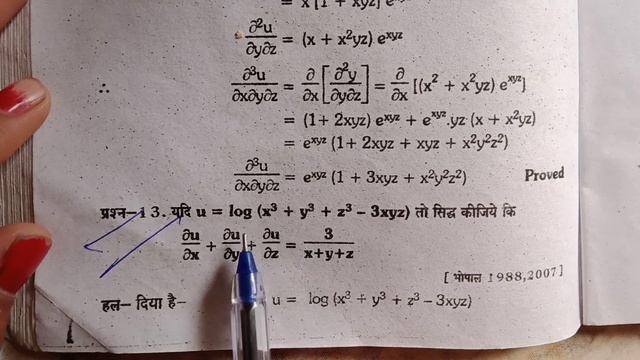 = x [1 + xyz] e^xyz
∂²u/∂y∂z = (x + x²yz) e^xyz
∴ ∂³u/∂x∂y∂z = ∂/∂x [∂²y/∂y∂z] = ∂/∂x [(x² + x²yz) e^xyz]
= (1+ 2xyz) e^xyz + e^xyz.yz (x + x²yz)
= e^xyz (1 + 2xyz + xyz + x²y²z²)
∂³u/∂x∂y∂z = e^xyz (1 + 3xyz + x²y²z²) Proved
प्रश्न–13. यदि u = log (x³ + y³ + z³ – 3xyz) तो सिद्ध कीजिये कि
∂u/∂x + ∂u/∂y + ∂u/∂z = 3/x+y+z
[ भोपाल 1988,2007]
हल– दिया है– u = log(x³ + y³ + z³ – 3xyz)